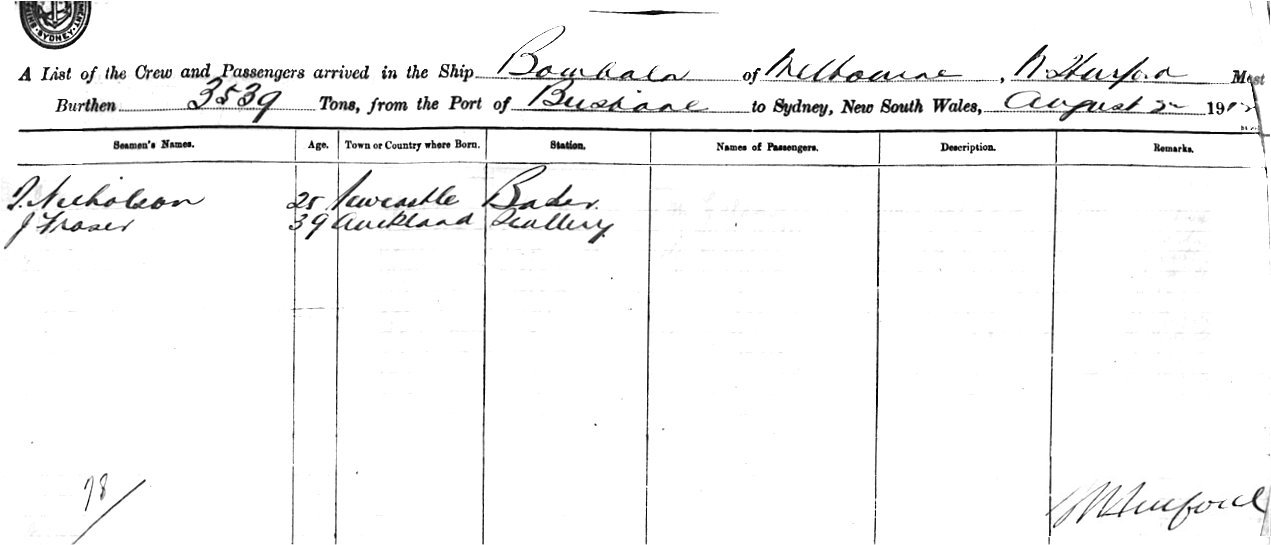 SYDNEY
A List of the Crew and Passengers arrived in the Ship Bombala of Melbourne, Mast
Burthen 3539 Tons, from the Port of Brisbane to Sydney, New South Wales, August 2 191
Seamen's Names. Age. Town or Country where Born. Station. Names of Passengers. Description. Remarks.
Nicholson 25 Newcastle
J Fraser 39 Auckland Scullery
78